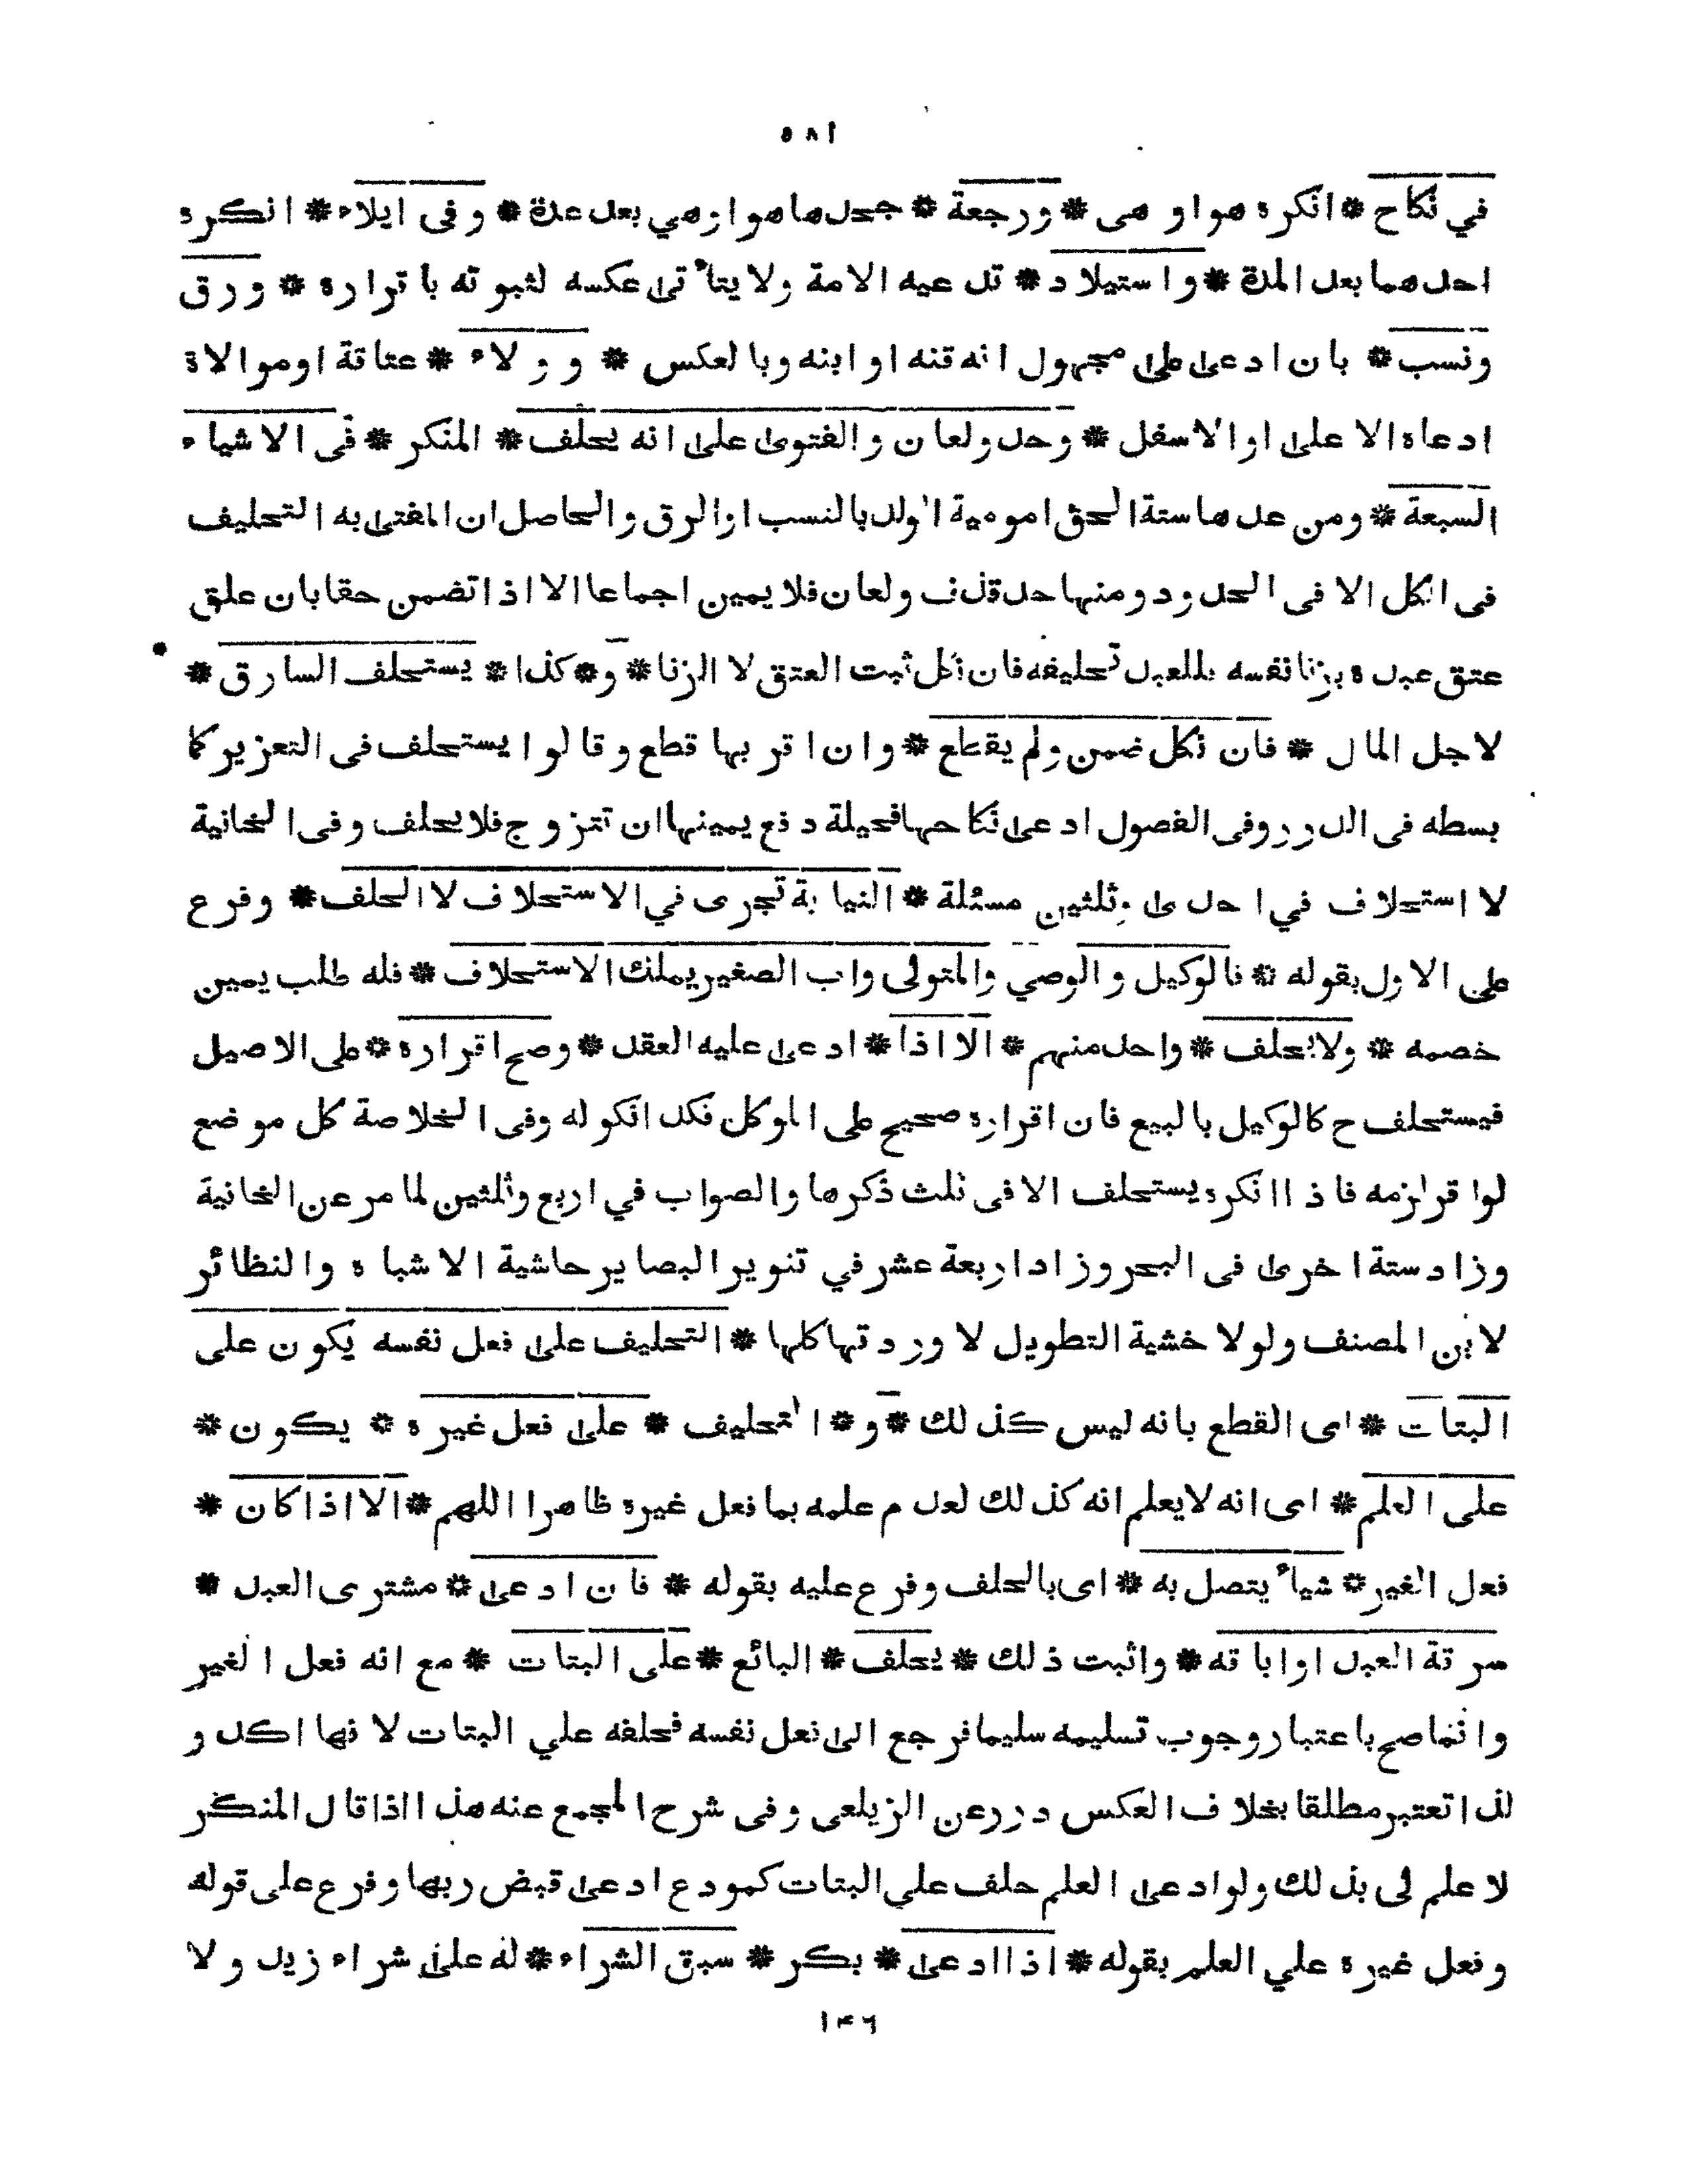 ٥٨١
في نكاح * انكره هو او هي * ورجعة * جحدها هو او هي بعد عدة * وفى ايلاء * انكره
احدهما بعد المدة * واستيلاد * تدعيه الامة ولا يتأتى عكسه لثبوته باقراره * ورق
ونسب * بان ادعى على مجهول انه قنه او ابنه وبالعكس * وولاء * عتاقة او موالاة
ادعاه الاعلى او الاسفل * وحد ولعان والفتوى على انه يحلف * المنكر * فى الاشياء
السبعة * ومن عدها ستة الحق امومية الولد بالنسب او الرق والحاصل ان المفتى به التحليف
فى الكل الا فى الحدود ومنها حد قذف ولعان فلا يمين اجماعا الا اذا تضمن حقا بان علق
عتق عبده بزنا نفسه فللعبد تحليفه فان نكل ثبت العتق لا الزنا * و * كذا * يستحلف السارق *
لاجل المال * فان نكل ضمن ولم يقطع * وان اقر بها قطع وقالوا يستحلف فى التعزير كما
بسطه فى الدرر وفى الفصول ادعى نكاحها فحيلة دفع يمينها ان تتزوج فلا يحلف وفى الخانية
لا استحلاف في احدى وثلثين مسئلة * النيابة تجرى في الاستحلاف لا الحلف * وفرع
على الاول بقوله * فالوكيل والوصي والمتولى واب الصغير يملك الاستحلاف * فله طلب يمين
خصمه * ولا يحلف * واحد منهم * الا اذا * ادعى عليه العقد * وصح اقراره * على الاصيل
فيستحلف ح كالوكيل بالبيع فان اقراره صحيح على الموكل فكذا نكوله وفى الخلاصة كل موضع
لو اقر لزمه فاذا انكره يستحلف الا فى ثلث ذكرها والصواب في اربع وثلثين لما مر عن الخانية
وزاد ستة اخرى فى البحر وزاد اربعة عشر في تنوير البصاير حاشية الاشباه والنظائر
لابن المصنف ولولا خشية التطويل لاوردتها كلها * التحليف على فعل نفسه يكون على
البتات * اى القطع بانه ليس كذلك * و * التحليف * على فعل غيره * يكون *
على العلم * اى انه لا يعلم انه كذلك لعدم علمه بما فعل غيره ظاهرا اللهم * الا اذا كان *
فعل الغير * شيأ يتصل به * اى بالحلف وفرع عليه بقوله * فان ادعى * مشترى العبد *
سرقة العبد او اباقه * واثبت ذلك * يحلف * البائع * على البتات * مع انه فعل الغير
وانما صح باعتبار وجوب تسليمه سليما فرجع الى فعل نفسه فحلفه علي البتات لانها اكد و
لذا تعتبر مطلقا بخلاف العكس درر عن الزيلعى وفى شرح المجمع عنه هذا اذا قال المنكر
لا علم لى بذلك ولو ادعى العلم حلف علي البتات كمودع ادعى قبض ربها وفرع على قوله
وفعل غيره علي العلم بقوله * اذا ادعى * بكر * سبق الشراء * له على شراء زيد ولا
١٤٦